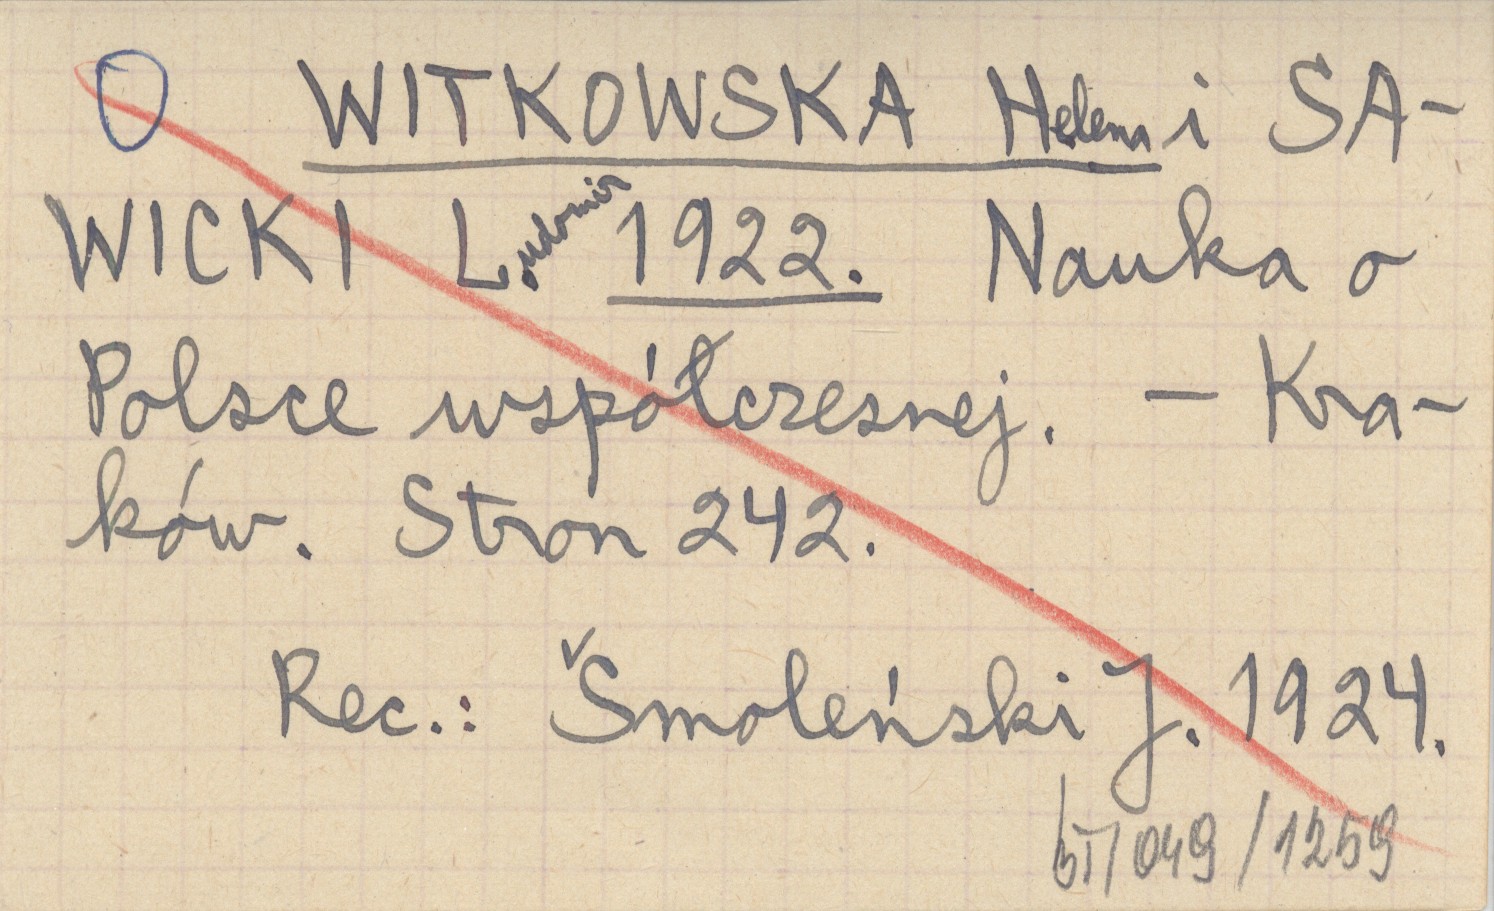 WITKOWSKA Helena i SA-
WICKI L. udomir 1922. Nauka o
Polsce współczesnej. — Kra-
ków. Stron 242.
Rec.: Smoleński J. 1924.
bT/049/1259